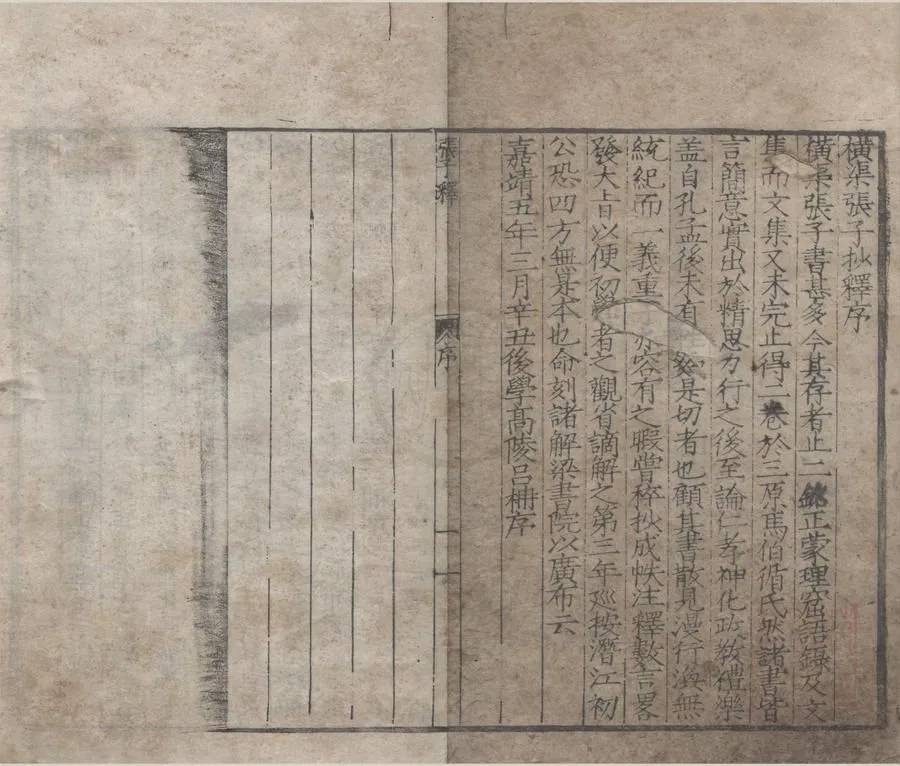 橫渠張子抄釋序
橫渠張子書甚多今其存者止二銘正蒙理窟語錄及文
集而文集又未完止得二卷於三原馬伯循氏然諸書皆
言簡意實出於精思力行之後至論仁孝神化政教禮樂
盖自孔孟後未有能如是切者也顧其書散見漫行渙無
統紀而一義重出亦容有之暇嘗稡抄成帙注釋數言畧
發大旨以便初學者之觀省謫解之第三年廵按潛江初
公恐四方無是本也命刻諸解梁書院以廣布云
嘉靖五年三月辛丑後學高陵呂柟序
張子釋
序